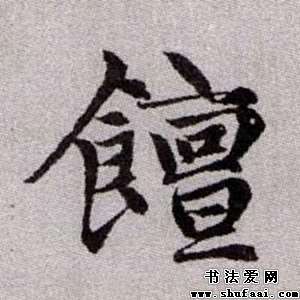 饘
书法爱网
www.shufaai.com